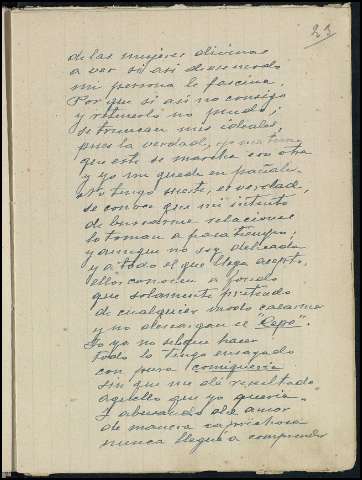 23
de las mujeres divinas
a ver si asi de ese modo
mi persona le fascina
Por que si asi no consigo
y retenerlo no puedo;
se truncan mis ideales,
pues la verdad,
que este se marche con otra
y yo me quede en pañales.
No tengo suerte, es verdad,
se conoce que mi sistema
de buscarme relaciones
lo toman a pasatiempo;
y aunque no soy delicada
y a todo el que llega acepto,
ellos conocen a fondo
que solamente pretendo
de cualquier modo casarme
y no descargan el "Cepo".
Yo ya no se que hacer
todo lo tengo ensayado
con pura
sin que me dé resultado
aquello que yo queria.
Y abusando del amor
de manera caprichosa
nunca llegué a comprender